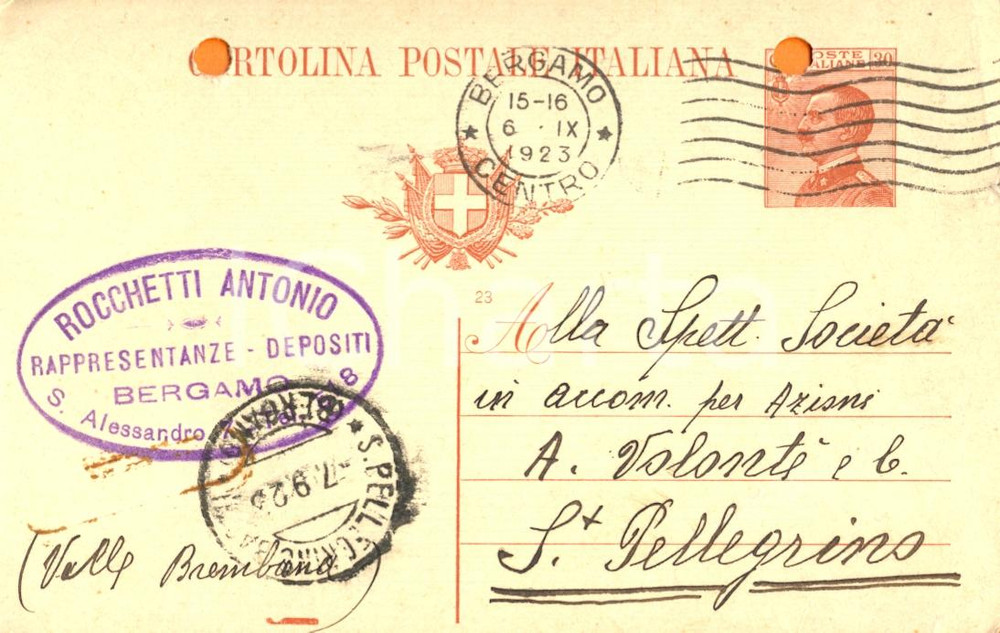 CARTOLINA POSTALE ITALIANA
POSTE ITALIANE 30
BERGAMO
15-16
6 · IX
1923
CENTRO
ROCCHETTI ANTONIO
RAPPRESENTANZE - DEPOSITI
BERGAMO
S. Alessandro 8
S. PELLEGRINO
(BERGAMO)
7.9.23
23
Alla Spett. Società
in accom. per Azioni
A. Volontè e C.
St Pellegrino
(Valle Brembana)